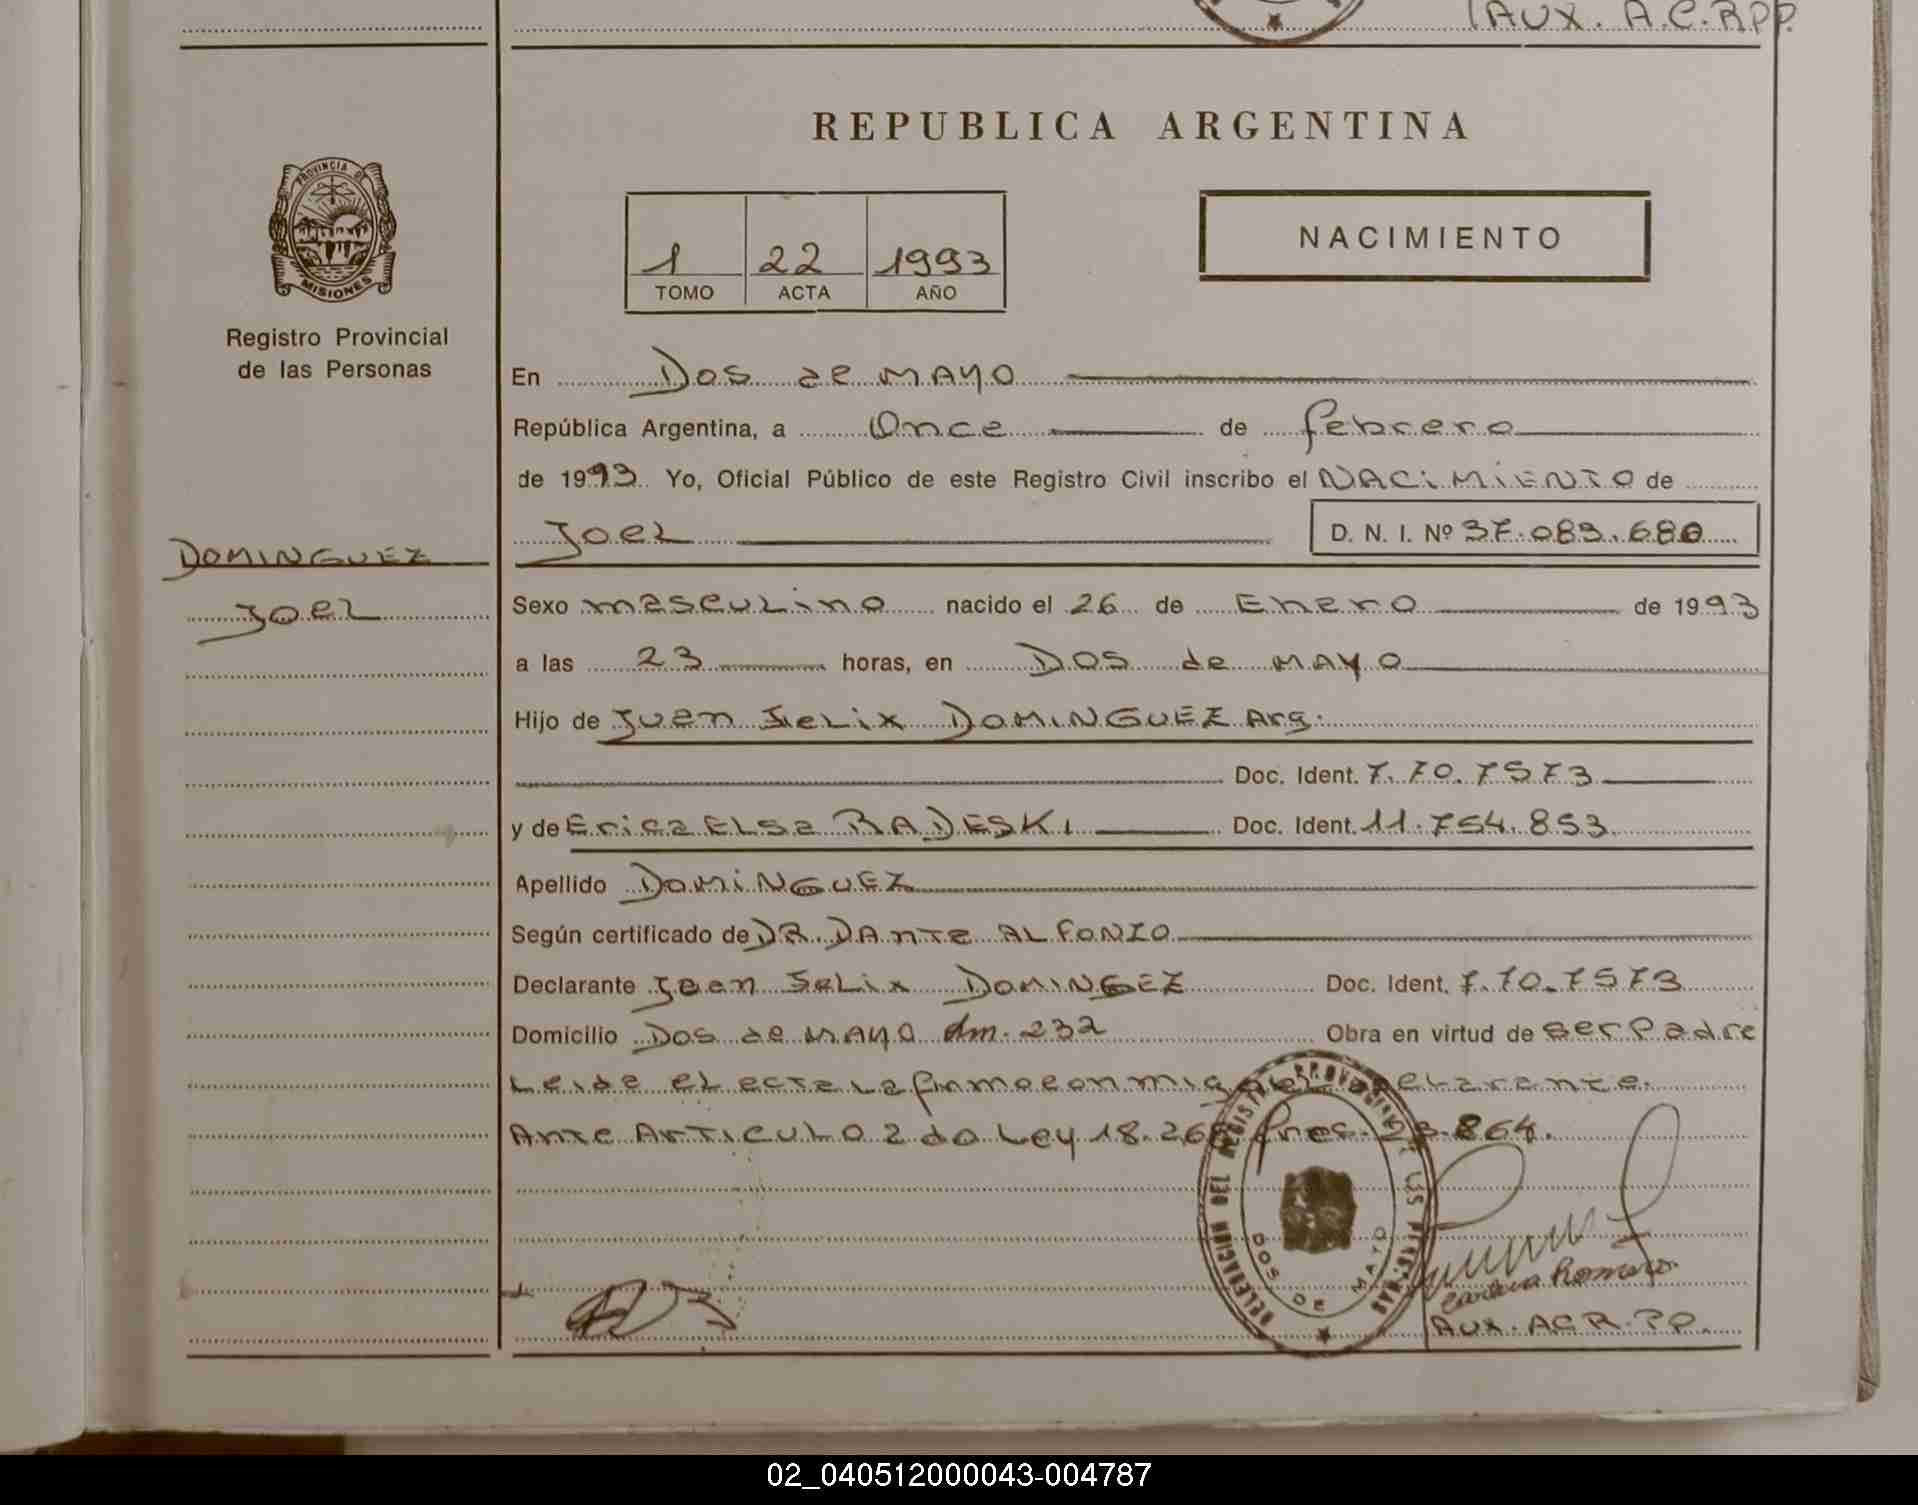 AUX. A.C.RPP.
REPUBLICA ARGENTINA
PROVINCIA DE
MISIONES
Registro Provincial
de las Personas
1 22 1993
TOMO ACTA AÑO
NACIMIENTO
En Dos de MAYO
República Argentina, a Once de febrero
de 1993 Yo, Oficial Público de este Registro Civil inscribo el NACIMIENTO de
Joel D. N. I. Nº 37.083.680
DOMINGUEZ
Joel
Sexo masculino nacido el 26 de Enero de 1993
a las 23 horas, en Dos de MAYO
Hijo de Juan Felix DOMINGUEZ Arg.
Doc. Ident. 7.70.7573
y de Erica Elsa RADESKI Doc. Ident. 11.754.853
Apellido DOMINGUEZ
Según certificado de DR. DANTE ALFONZO
Declarante Juan Felix DOMINGEZ Doc. Ident. 7.70.7573
Domicilio Dos de MAYO Km. 232 Obra en virtud de ser Padre
Leida el acta La firma con migo el declarante.
Ante Articulo 2 do Ley 18.26 Pres. 23.864.
DELEGACION DEL REGISTRO PROVINCIAL DE LAS PERSONAS
DOS DE MAYO
Romero
AUX. ACR. PP.
02_040512000043-004787